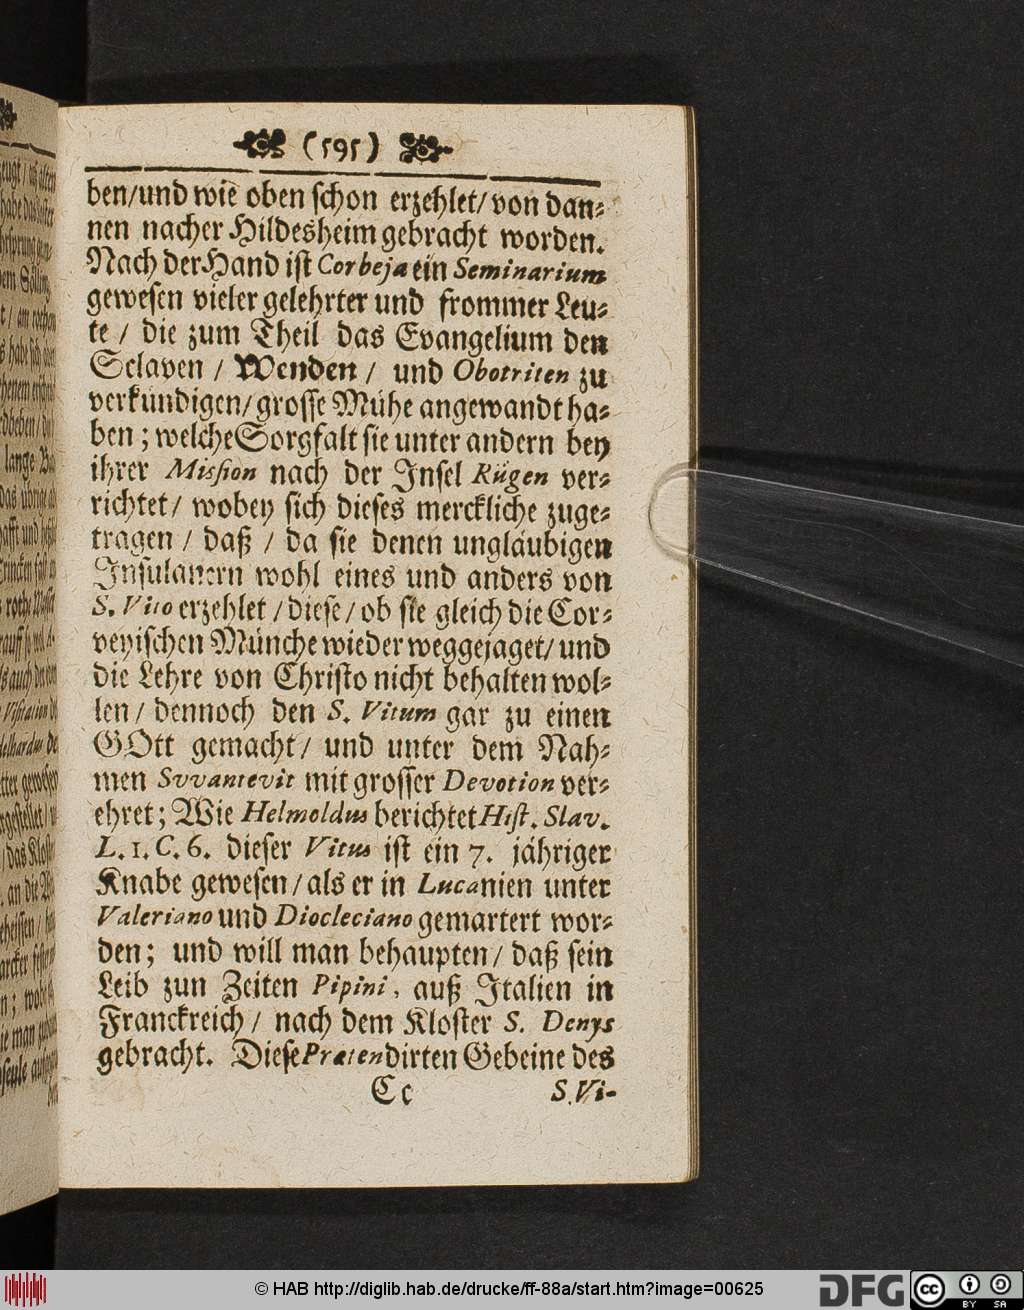 (595)
ben/und wie oben schon erzehlet/ von dan-
nen nacher Hildesheim gebracht worden.
Nach der Hand ist Corbeja ein Seminarium
gewesen vieler gelehrter und frommer Leu-
te / die zum Theil das Evangelium den
Sclaven / Wenden / und Obotriten zu
verkündigen/ grosse Mühe angewandt ha-
ben ; welche Sorgfalt sie unter andern bey
ihrer Mission nach der Insel Rügen ver-
richtet/ wobey sich dieses merckliche zuge-
tragen / daß / da sie denen ungläubigen
Insulanern wohl eines und anders von
S. Vito erzehlet / diese / ob sie gleich die Cor-
veyischen Münche wieder weggejaget/ und
die Lehre von Christo nicht behalten wol-
len / dennoch den S. Vitum gar zu einen
GOtt gemacht/ und unter dem Nah-
men Svvantevit mit grosser Devotion ver-
ehret ; Wie Helmoldus berichtet Hist. Slav.
L. 1. C. 6. dieser Vitus ist ein 7. jähriger
Knabe gewesen / als er in Lucanien unter
Valeriano und Diocleciano gemartert wor-
den ; und will man behaupten / daß sein
Leib zun Zeiten Pipini, auß Italien in
Franckreich / nach dem Kloster S. Denys
gebracht. Diese Prætendirten Gebeine des
Cc S. Vi-
© HAB http://diglib.hab.de/drucke/ff-88a/start.htm?image=00625
DFG cc BY SA